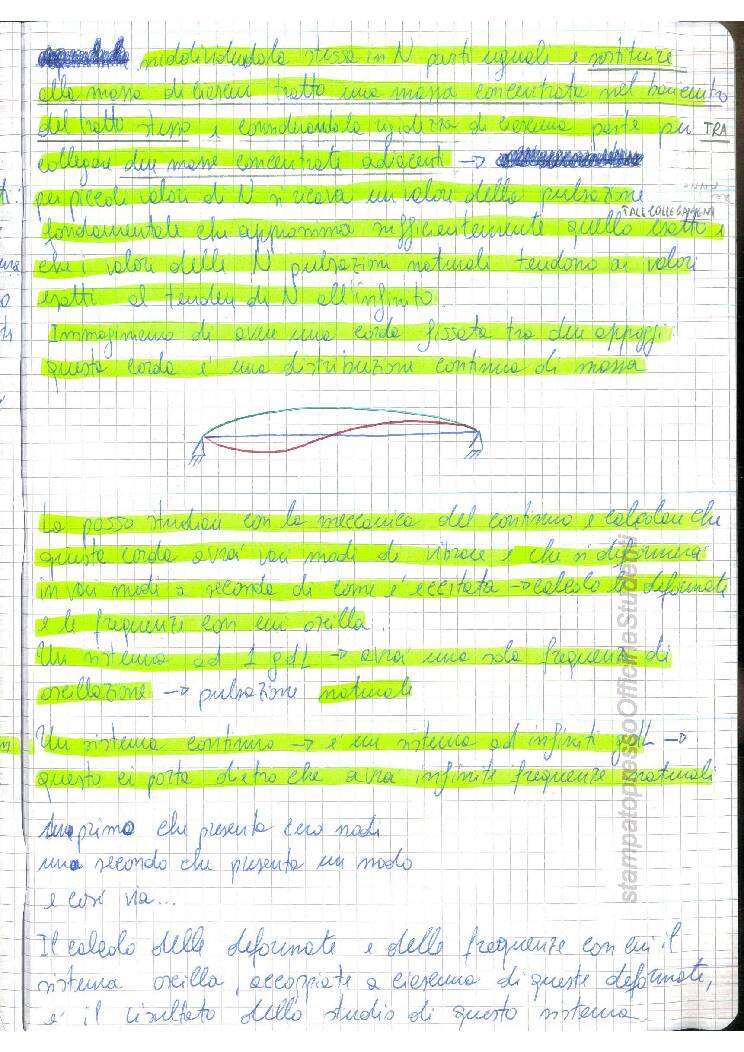 suddividendola stessa in N parti uguali e sostituire
alla massa di ciascun tratto una massa concentrata nel baricentro
del tratto stesso e considerando la rigidezza di ciascuna parte per TRA
collegare due masse concentrate adiacenti →
per piccoli valori di N si ricava un valore della pulsazione
TALE COLLEGAMENTI
fondamentale che approssima sufficientemente quello esatto e
che i valori delle N pulsazioni naturali tendono ai valori
esatti al tendere di N all'infinito.
Immaginiamo di avere una corda fissata tra due appoggi:
questa corda è una distribuzione continua di massa
La posso studiare con la meccanica del continuo e calcolare che
questa corda avrà vari modi di vibrare e che si deformerà
in vari modi a seconda di come è eccitata → calcolo le deformate
e le frequenze con cui oscilla.
Un sistema ad 1 gdL → avrà una sola frequenza di
oscillazione → pulsazione naturale
Un sistema continuo → è un sistema ad infiniti gdL →
questo ci porta dietro che avrà infinite frequenze naturali
una primo che presenta zero nodi
una secondo che presenta un nodo
e così via...
Il calcolo delle deformate e delle frequenze con cui il
sistema oscilla, accoppiate a ciascuna di queste deformate,
è il risultato dello studio di questo sistema.
stampatopressoOfficinaStudenti